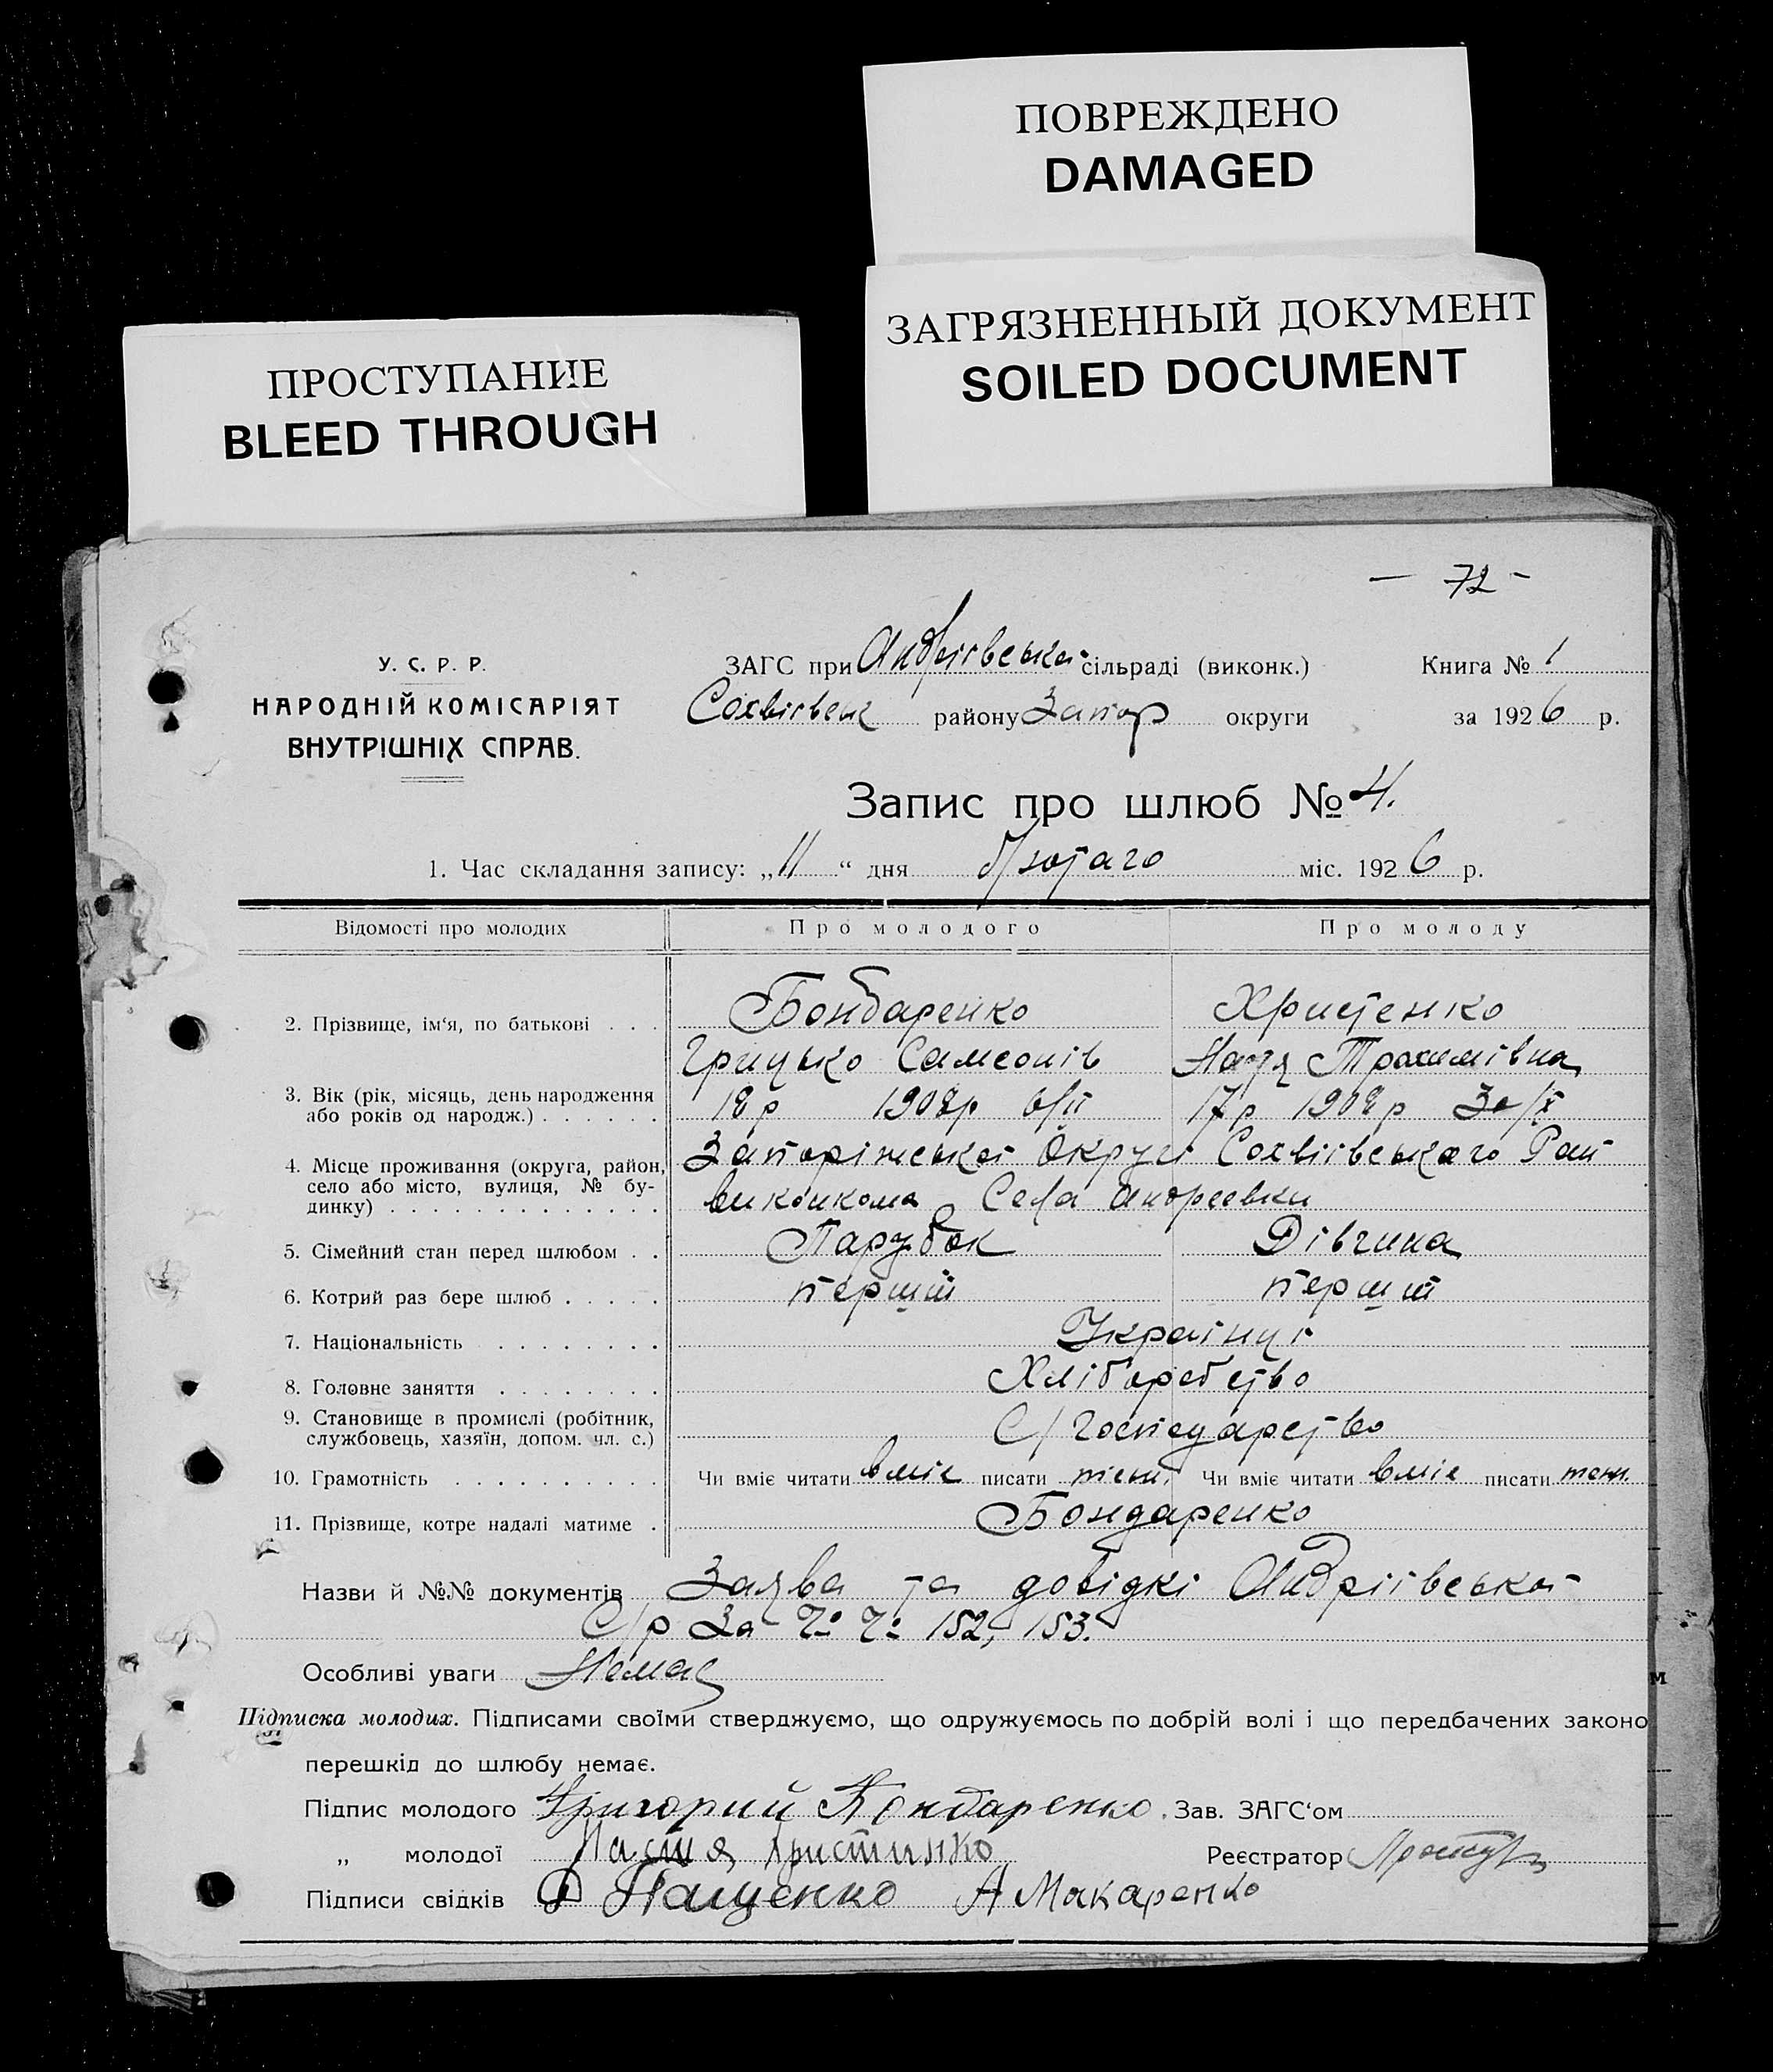 ПОВРЕЖДЕНО
DAMAGED
ЗАГРЯЗНЕННЫЙ ДОКУМЕНТ
SOILED DOCUMENT
ПРОСТУПАНИЕ
BLEED THROUGH
— 72 -
У. С. Р. Р.
НАРОДНІЙ КОМІСАРІЯТ
ВНУТРІШНІХ СПРАВ.
ЗАГС при Андріївській сільраді (виконк.) Книга № 1
Сохвіївськ району Запор округи за 1926 р.
Запис про шлюб № 4.
1. Час складання запису: „11“ дня Лютаго міс. 1926 р.
Відомості про молодих Про молодого Про молоду
2. Прізвище, ім‘я, по батькові . . . Бондаренко Христенко
Грицько Самсонів Настя Трохимівна
3. Вік (рік, місяць, день народження
або років од народж.) . . . . . . 18 р 1908р 6/II 17 р 1908 р 30/X
4. Місце проживання (округа, район,
село або місто, вулиця, № бу-
динку) . . . . . . . . . . . . . Запоріжської Округи Сохвіївського Рай
виконкома Села Андреевки
5. Сімейний стан перед шлюбом . . Парубок Дівчина
6. Котрий раз бере шлюб . . . . . перший перший
7. Національність . . . . . . . . Українці
8. Головне заняття . . . . . . . . Хліборобство
9. Становище в промислі (робітник,
службовець, хазяїн, допом. чл. с.) С/Господарство
10. Грамотність . . . . . . . . . . Чи вміє читати вміє писати Чи вміє читати вміє писати
11. Прізвище, котре надалі матиме . Бондаренко
Назви й №№ документів Заява та довідкі Андріївської
С/р За № № 152, 153.
Особливі уваги Немає
Підписка молодих. Підписами своїми стверджуємо, що одружуємось по добрій волі і що передбачених законо
м
перешкід до шлюбу немає.
Підпис молодого Григорий Бондаренко. Зав. ЗАГС‘ом
„ молодої Настя Христинко Реєстратор
Підписи свідків Ф Пащенко А Макаренко